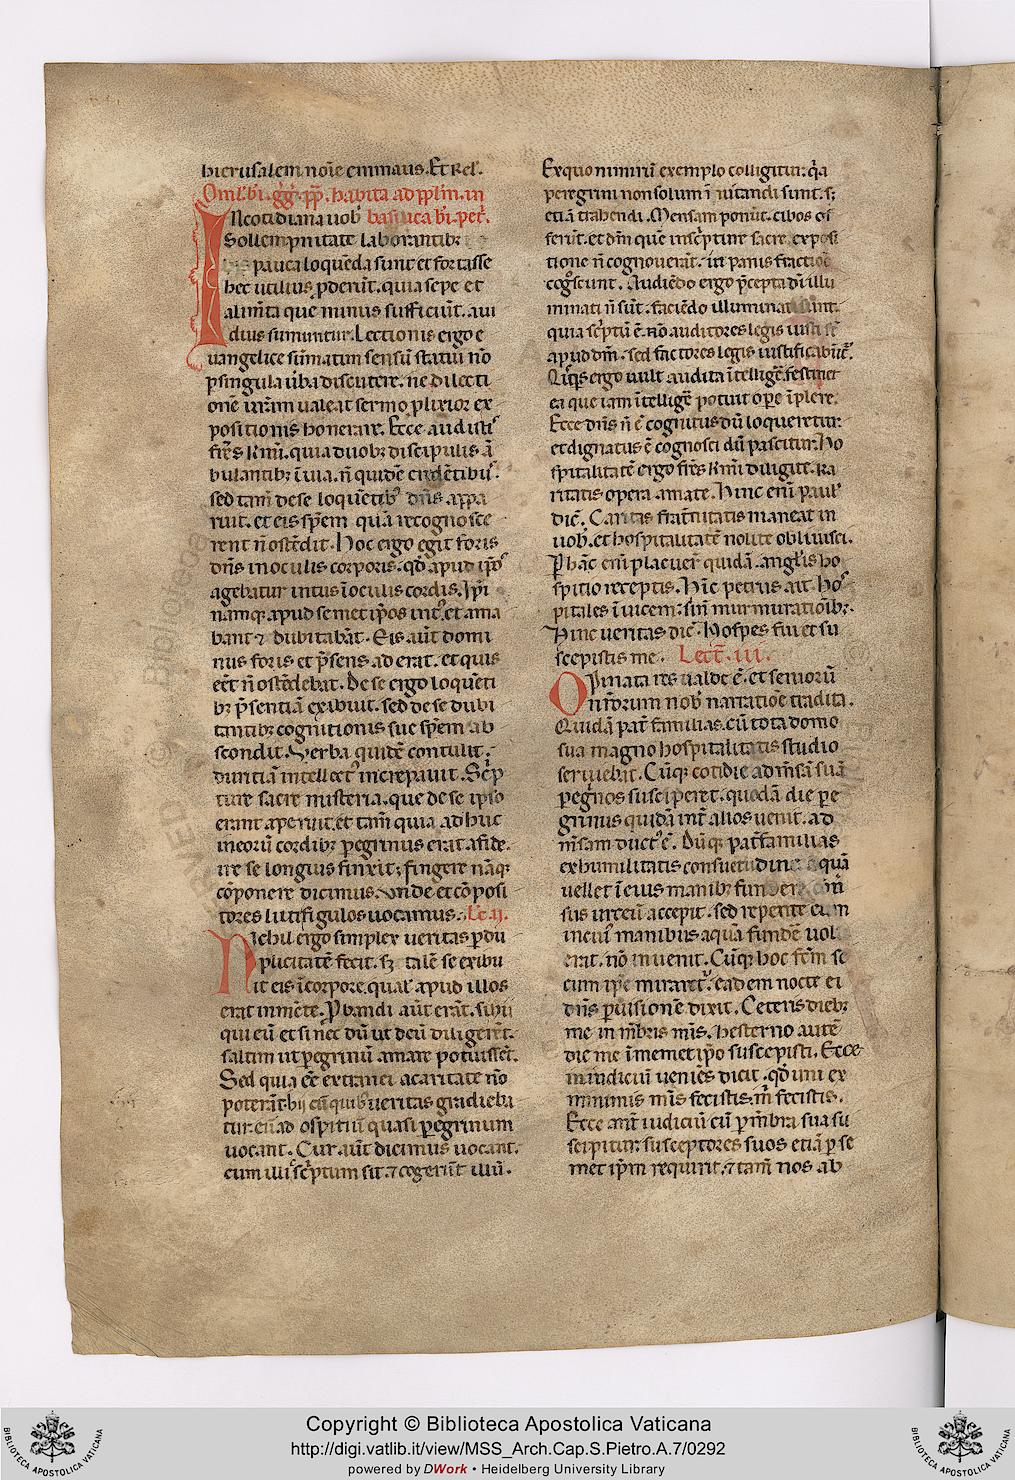 hierusalem noīe emmaus. Et Rel̾.
Omĺ. bī. gr̄g̾. pp̄. habita ad pp̄lm̄. in
INcotidiana uob̾ basilica bī. pet̾.
Sollempnitate laborantibꝫ
pauca loquēda sunt et fortasse
hec utilius ꝓderūt. quia sepe et
alim̄ta que minus sufficiūt. aui
dius sumuntur. Lectionis ergo e
uangelice sūmatim sensū statui nō
ꝑ singula ūba discutere. ne dilecti
onē ur̄am ualeat sermo ꝓlixior ex
positionis honerare. Ecce audistis
fr̄es km̄i. quia duobꝫ discipulis ā
bulantibꝫ ī uia. n̄ quidē credētibus.
sed tam̄ de se loquētibꝫ dn̄s appa
ruit. et eis spēm quā recognosce
rent n̄ ostēdit. Hoc ergo egit foris
dn̄s in oculis corporis. qd̾ apud ip̄os
agebatur intus ī oculis cordis. Ip̄i
nāmqꝫ apud semet ip̄os int̾ et ama
bant ⁊ dubitabāt. Eis aūt domi
nus foris et p̄sens ad erat. et quis
eēt n̄ ostēdebat. De se ergo loquēti
bꝫ p̄sentiā exibuit. sed de se dubi
tantibꝫ cognitionis sue spēm ab
scondit. Verba quidē contulit.
duritiā intellect̾ increpauit. Sc̄p
ture sacre misteria. que de se ipso
erant aperuit. et tam̄ quia ad huc
in eorū cordibꝫ peregrinus erat a fide.
ire se longius finxit; fingere nāqꝫ
cōponere dicimus. vnde et cōposi
tores luti figulos uocamus. Lc̄. ij.
Nichil ergo simplex ueritas ꝑ du
plicitatē fecit. sꝫ talē se exibu
it eis ī corpore. qual̾ apud illos
erat in mēte. Ꝓbandi aūt erāt. si hii
qui eū et si nec dū ut deū diligerēt.
saltim ut ꝑegrinū amare potuissēt.
Sed quia eē extranei a caritate nō
poterāt. hij cū quibꝫ ueritas gradieba
tur. eū ad ospitiū quasi ꝑegrinum
uocant. Cur aūt dicimus uocant.
cum illi sc̄ptum sit. ⁊ cogerūt illū.
Ex quo nimirū exemplo colligitur. qa
peregrini non solum ī uitandi sunt. sꝫ
etiā trahendi. Mensam ponūt. cibos of
ferūt. et dm̄ quē in sc̄pture sacre exposi
tione n̄ cognouerāt. in panis fractione
cog̾scunt. Audiēdo ergo p̄cepta dī illu
minati n̄ sūt. faciēdo illuminati sunt.
quia sc̄ptū ē. Nō auditores legis iusti sī
apud dm̄. sed factores legis iustificabūt̾.
Quisqꝫ ergo uult audita ītellige festinet
ea que iam ītellige potuit oꝑe īplere.
Ecce dn̄s n̄ ē cognitus dū loqueretur.
et dignatus ē cognosci dū pascitur. Ho
spitalitatē ergo fr̄es km̄i diligite. ka
ritatis opera amate. Hinc enī paul̾
dic̄. Caritas frat̄nitatis maneat in
uob̾. et hospitalitatē nolite obliuisci.
Per hāc enī placuer̄ quidā. angl̾is ho
spitio receptis. Hīc petrus ait. Hos
pitales ī uicem: sin̄ murmurationibꝫ.
Hinc ueritas dic̄. Hospes fui et su
scepistis me. Lect̄. iii.
Opinata res ualde ē. et seniorū
nr̄orum nob̾ narratiōe tradita.
Quidā pat̄ familias. cū tota domo
sua magno hospitalitatis studio
seruiebat. Cūqꝫ cotidie ad mēsā suā
ꝑegrinos susciperet. quodā die pe
grinus quidā int̄ alios uenit. ad
mēsam duct̾ ē. Dūqꝫ pat̄familias
ex humilitatis consuetudine aquā
uellet ī eius manibꝫ fundere. con̄
sus urceū accepit. sed repente eum
in cui̾ manibus aquā fundē uol
erat. nō inuenit. Cūqꝫ hoc fc̄m se
cum ip̄e miraret̾. eadem nocte ei
dn̄s ꝑ uisionē dixit. Ceteris diebꝫ
me in mēbris mīs. hesterno autē
die me ī memet ip̄o suscepisti. Ecce
in iudiciū ueniēs dicit. qd̾ uni ex
minimis mīs fecistis. m̄ fecistis.
Ecce ant̄ iudiciū cū ꝑ mēbra sua su
scipitur: susceptores suos etiā ꝑ se
met ip̄m requirit. ⁊ tam̄ nos ab
Copyright © Biblioteca Apostolica Vaticana
http://digi.vatlib.it/view/MSS_Arch.Cap.S.Pietro.A.7/0292
powered by DWork • Heidelberg University Library
BIBLIOTECA APOSTOLICA VATICANA
BIBLIOTECA APOSTOLICA VATICANA